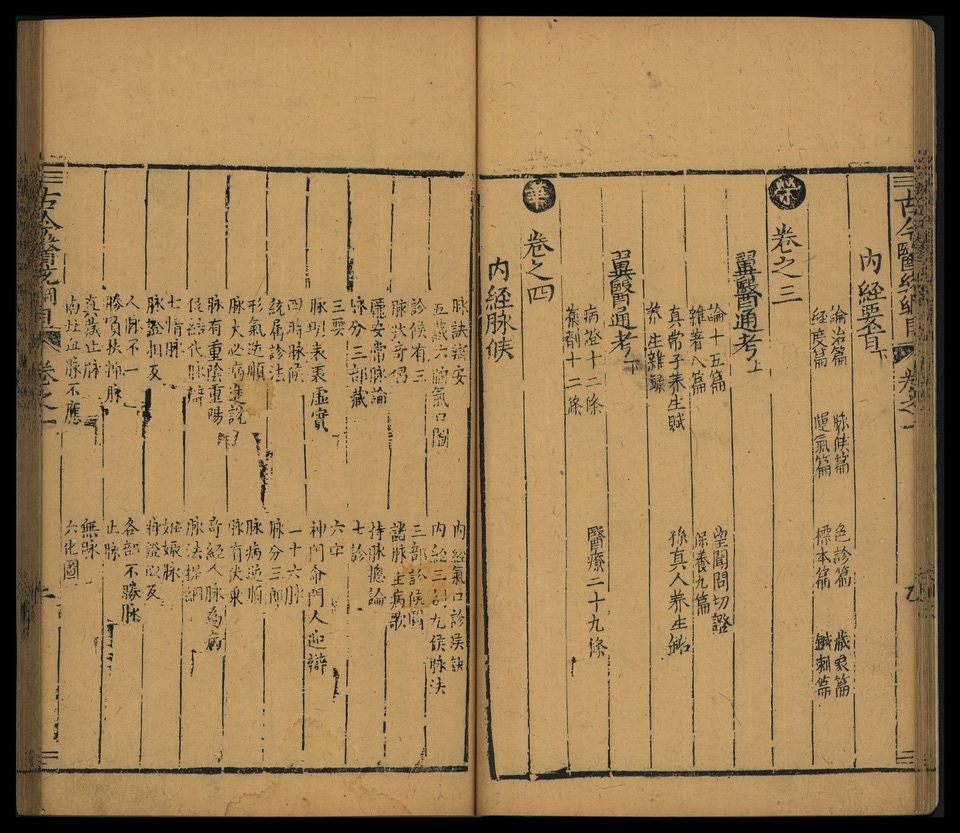 內經要旨下
論治篇 脉候篇 色診篇 藏象篇
經度篇 運氣篇 標本篇 鍼刺篇
榮
卷之三
翼醫通考上
論十五篇 望聞問切證
雜著八篇 保養九篇
真常子養生賦 孫真人養生銘
養生雜録
翼醫通考下
病證十二條 醫療二十九條
藥劑十二條
華
卷之四
內經脉候
脉訣辯妄 內經氣口診候訣
五藏六腑氣口圖 內經三部九侯脉法
診候有三 三部診候圖
脉狀奇偶 諸脉主病歌
龐安常脉論 持脉總論
脉分三部藏 七診
三要
脉明表裏虛實 神門命門人迎辯
四時脉候 一十六脉
統属診法 脉分三部
形氣逆順 脉病逆順
脉大必病進說 脉有伏東
脉有重陰重陽 奇經八脉為病
促結代脉辯 脉法提綱
七情脉 妊娠脉
脉證相反
人脉不一 各部不勝脉
勝負扶抑脉 止脉
真藏止脉 無脉
六化圖
卷之一